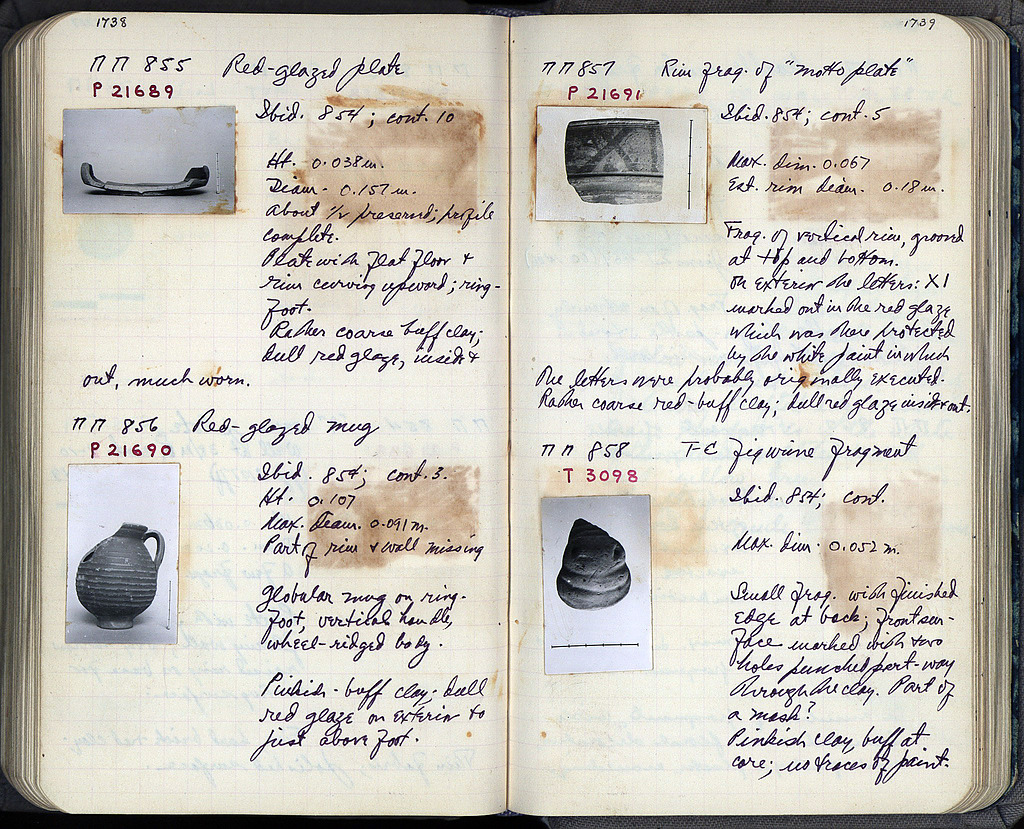 1738
ΠΠ 855 Red-glazed plate
P 21689
Ibid. 854; cont. 10
Ht. 0.038 m.
Diam. 0.157 m.
About 1/2 preserved; profile
complete.
Plate with flat floor +
rim curving upward; ring-
foot.
Rather coarse buff clay;
dull red glaze, inside +
out, much worn.
ΠΠ 856 Red-glazed mug
P 21690
Ibid. 854; cont. 3.
Ht. 0.107
Max. Diam. 0.091 m.
Part of rim + wall missing
Globular mug on ring-
foot, vertical handle,
wheel-ridged body.
Pinkish-buff clay; dull
red glaze on exterior to
just above foot.
1739
ΠΠ 857 Rim frag. of "motto plate"
P 21691
Ibid. 854; cont. 5
Max. dim. 0.067
Est. rim diam. 0.18 m.
Frag. of vertical rim, grooved
at top and bottom.
On exterior the letters: XI
marked out in the red glaze
which was here protected
by the white paint in which
the letters were probably originally executed.
Rather coarse red-buff clay; dull red glaze inside + out.
ΠΠ 858 T-C figurine fragment
T 3098
Ibid. 854; cont.
Max. dim. 0.052 m.
Small frag. with finished
edge at back; front sur-
face marked with two
holes punched part-way
through the clay. Part of
a mask?
Pinkish clay, buff at
core; no traces of paint.